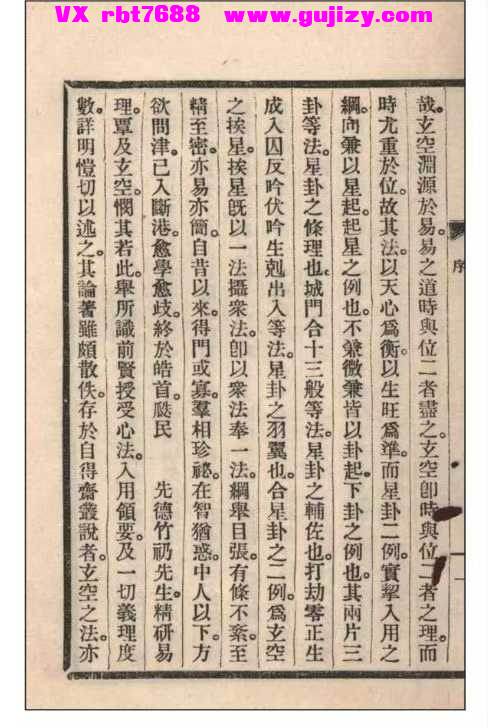 VX rbt7688 www.gujizy.com
序
一
哉。玄空淵源於易。易之道時與位二者盡之。玄空卽時與位二者之理。而
時尤重於位。故其法。以天心爲衡。以生旺爲準。而星卦二例。實挈入用之
綱。向兼以星起。起星之例也。不兼微兼皆以卦起。下卦之例也。其兩片三
卦等法。星卦之條理也。城門合十三般等法。星卦之輔佐也。打劫零正生
成入囚反吟伏吟生剋出入等法。星卦之羽翼也。合星卦之二例。爲玄空
之挨星。挨星旣以一法攝衆法。卽以衆法奉一法。綱舉目張。有條不紊。至
精至密。亦易亦簡。自昔以來。得門或寡。羣相珍祕。在智猶惑。中人以下。方
欲問津。已入斷港。愈學愈歧。終於皓首。  民　先德竹礽先生。精研易
理。覃及玄空。憫其若此。舉所識前賢授受心法。入用領要。及一切義理度
數。詳明愷切以述之。其論著雖頗散佚。存於自得齋叢說者。玄空之法。亦